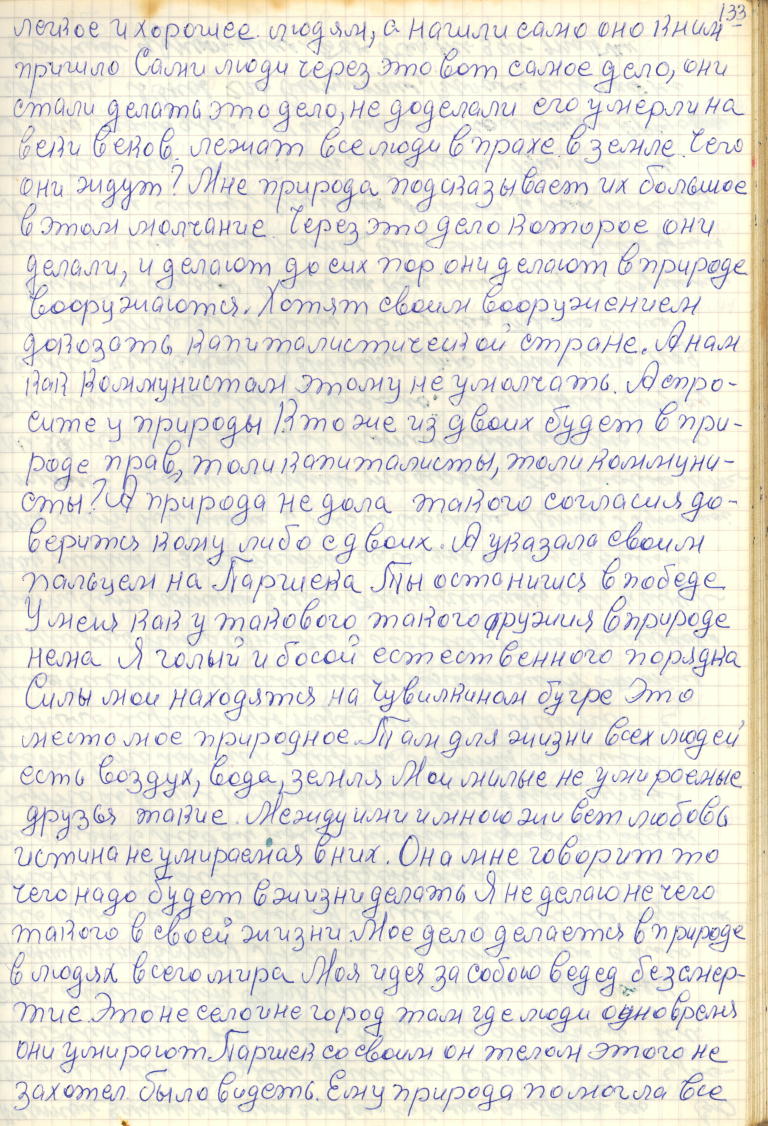 133
легкое и хорошее людям, а нашли само оно к ним
пришло Сами люди через это вот самое дело, они
стали делать это дело, не доделали его умерли на
веки веков. лежат все люди в прахе в земле. Чего
они ждут? Мне природа подсказывает их большое
в этом молчание. Через это дело которое они
делали, и делают до сих пор они делают в природе
вооружаются. Хотят своим вооружением
докозать капиталистической стране. А нам
как коммунистам этому не умолчать. А спро-
сите у природы Кто же из двоих будет в при-
роде прав, то ли капиталисты, то ли коммуни-
сты? А природа не дола такого согласия до-
верится кому либо с двоих. А указала своим
пальцем на Паршека Ты останишся в победе
У меня как у такового такого оружия в природе
нема Я голый и босой естественного порядка
Силы мои находятся на Чувилкином бугре Это
место мое природное. Там для жизни всех людей
есть воздух, вода, земля Мои милые не умироемые
друзья такие. Между ими и мною живет любовь
истина не умираемая в них. Она мне говорит то
чего надо будет в жизни делать Я не делаю не чего
такого в своей жизни Мое дело делается в природе
в людях всего мира Моя идея за собою ведед безсмер-
тие. Это не село и не город там где люди одно время
они умирают. Паршек со своим он телом этого не
захотел было видеть. Ему природа помогла все